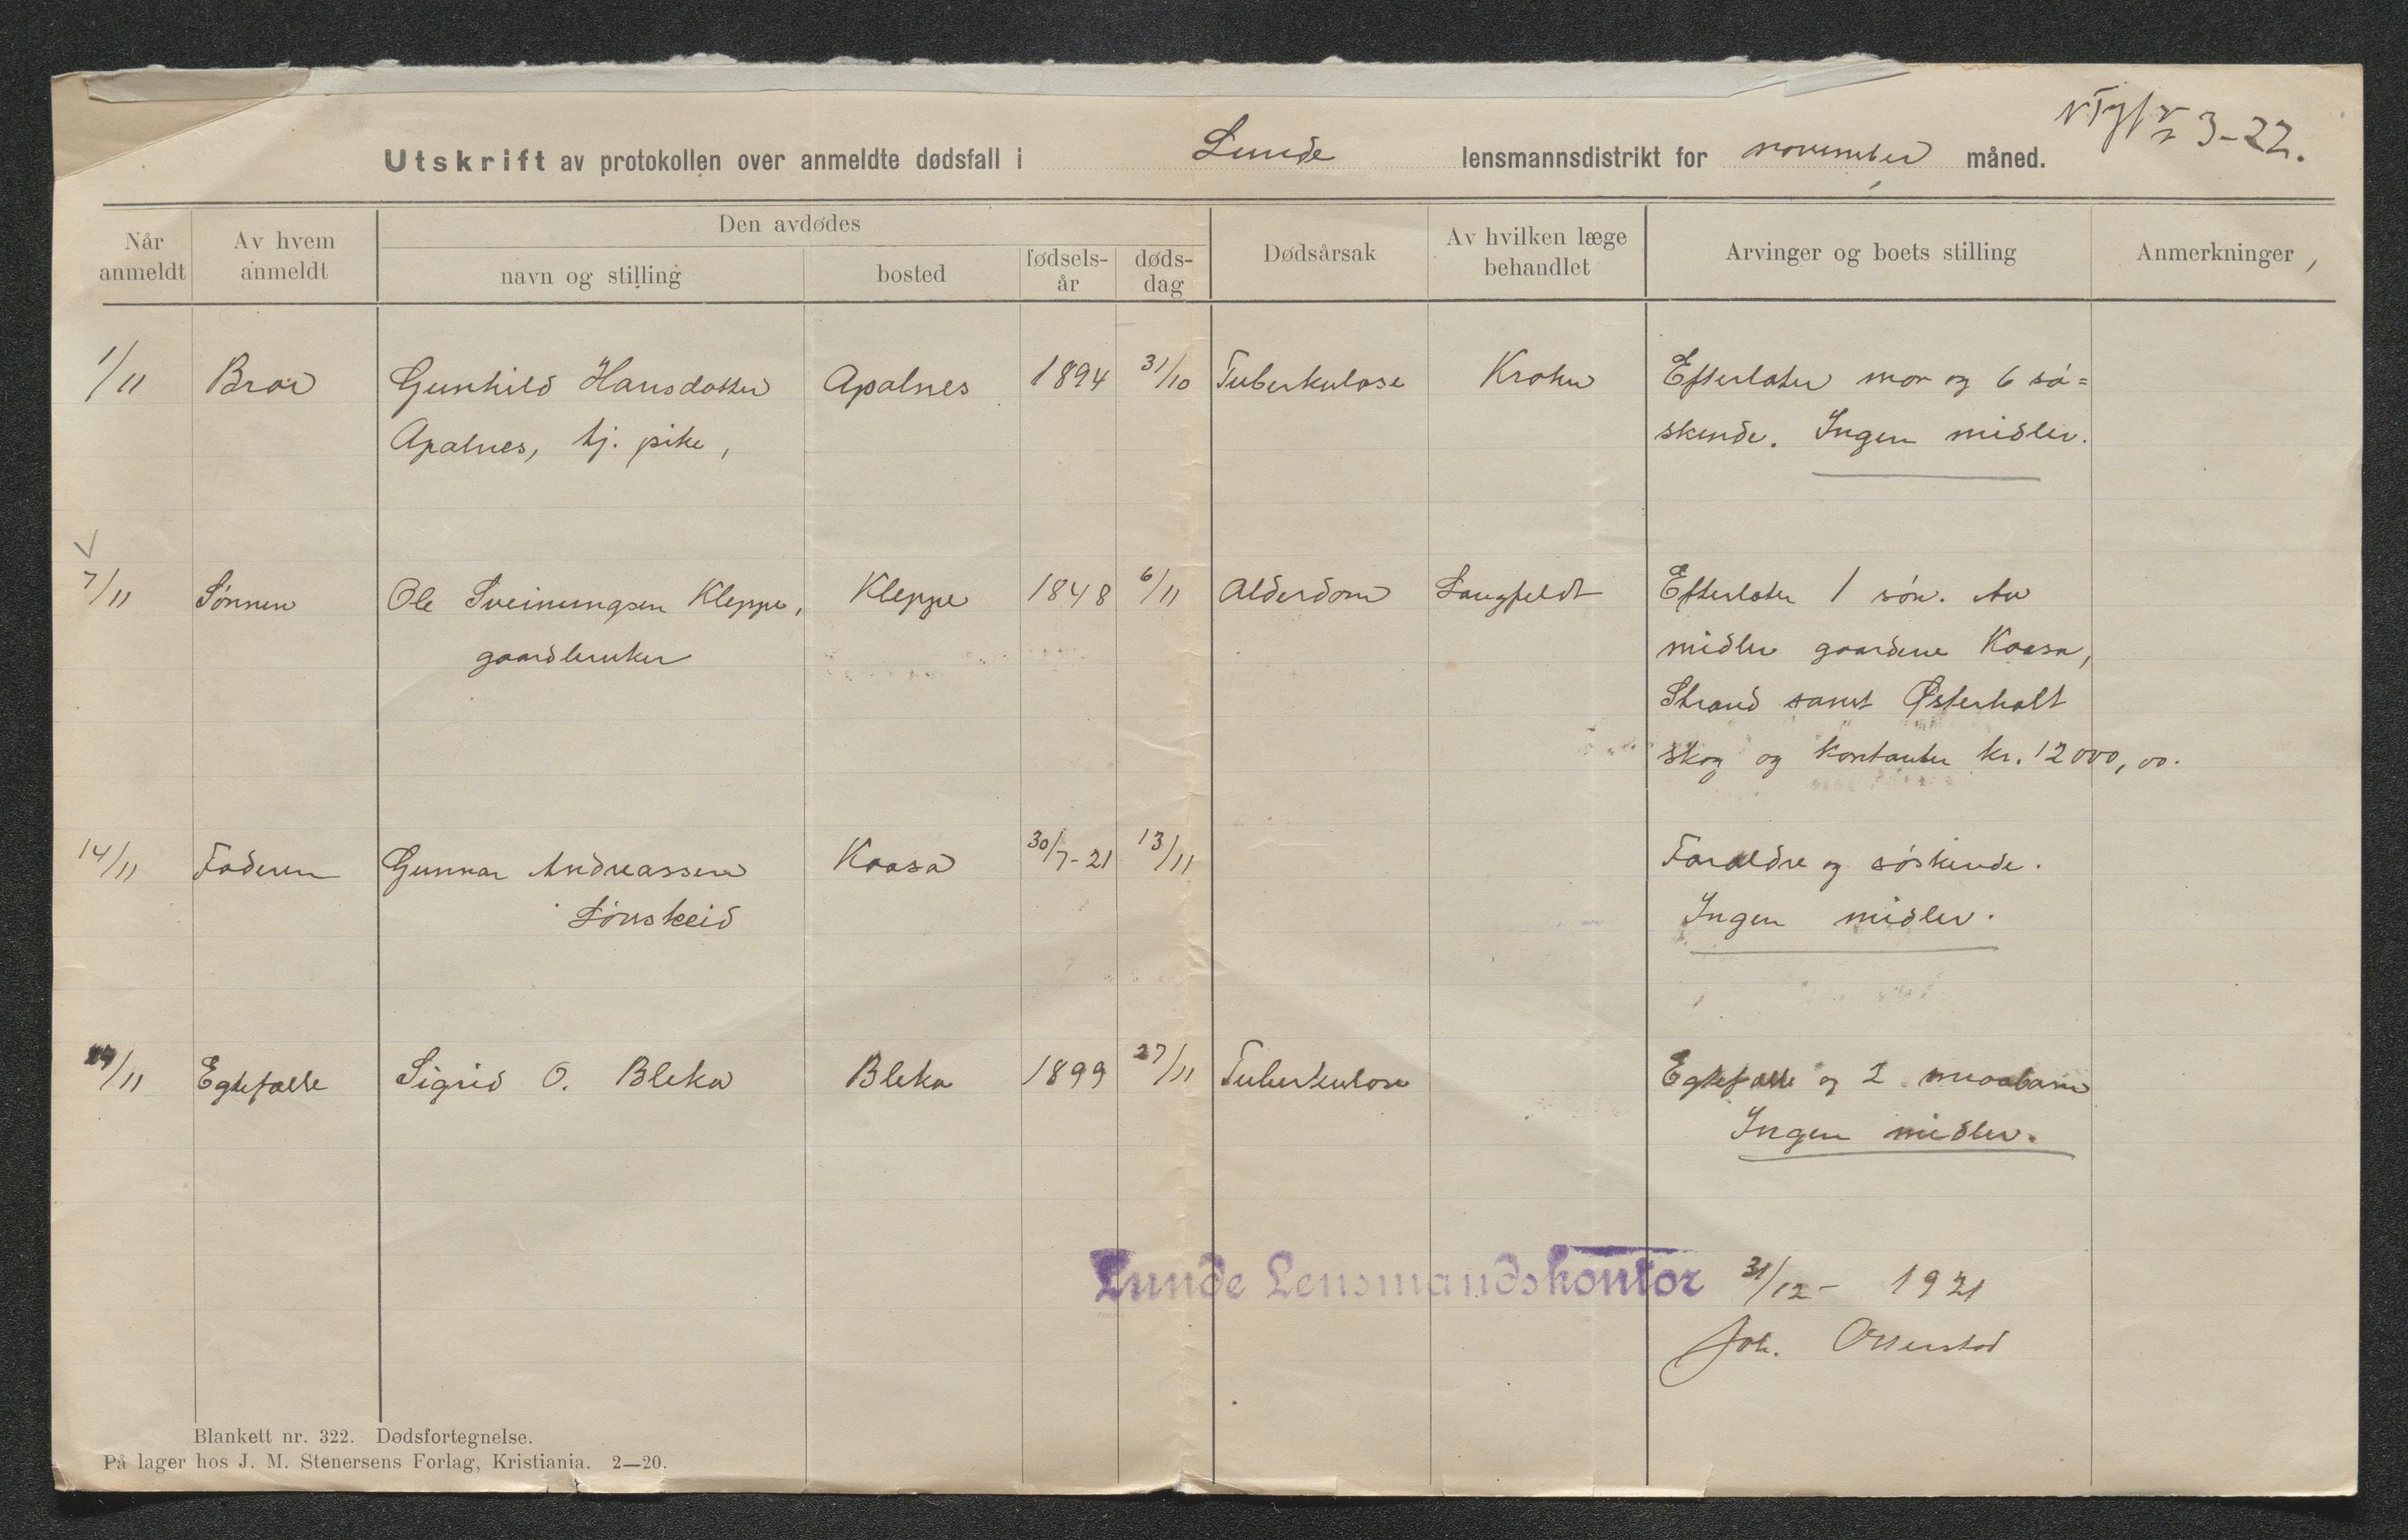 3-22.
Utskrift av protokollen over anmeldte dødsfall i Lunde lensmannsdistrikt for november måned.
Når anmeldt
Av hvem anmeldt
Den avdødes
navn og stilling
bosted
fødsels-år
døds-dag
Dødsårsak
Av hvilken læge behandlet
Arvinger og boets stilling
Anmerkninger
1/11 Bror Gunhild Hansdatter Apalnes 1894 31/10 Tuberkulose Krohn Efterlater mor og 6 sø=
Apalnes, tj. pike, skende. Ingen midler.
7/11 Sønnen Ole Sveinungsen Kleppe, Kleppe 1848 6/11 Alderdom Langfeldt Efterlater 1 søn. Av
gaardbruker midler gaardene Kaasa,
Strand samt Østerholt
skog og kontanter kr. 12000,00.
14/11 Faderen Gunnar Andreassen Kaasa 30/7-21 13/11 Foraeldre og søskende.
Lønskeid Ingen midler.
29/11 Egtefælle Sigrid O. Bleka Bleka 1899 27/11 Tuberkulose Egtefælle og 2 smaabarn
Ingen midler.
Lunde Lensmandskontor 31/12- 1921
Joh.
Blankett nr. 322. Dødsfortegnelse.
På lager hos J. M. Stenersens Forlag, Kristiania. 2—20.